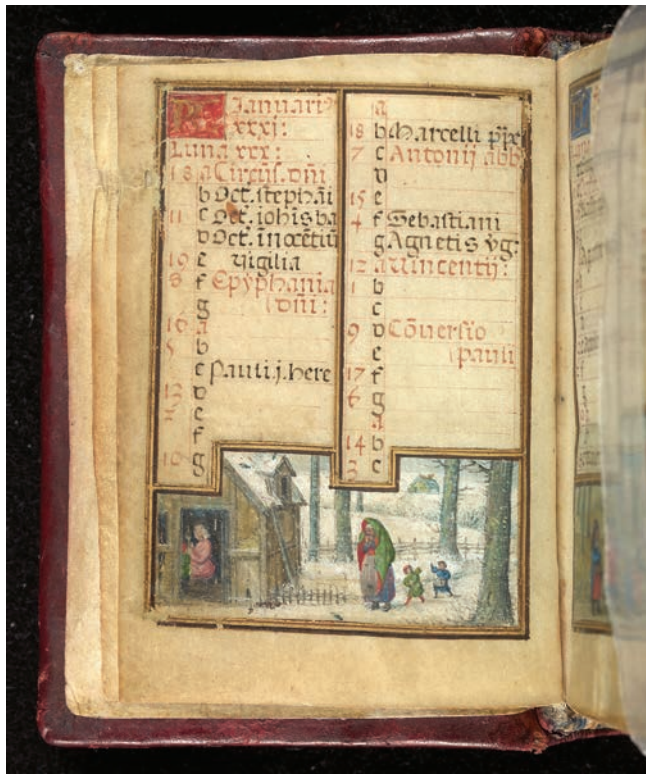 KL Januari⁹
xxxj:
Luna xxx:
18 a Circūs. dn̄i
b Oct. stephāi
11 c Oct. iohīs ba
d Oct. īnocētiū
19 e vigilia
8 f Epyphania
g dn̄i:
16 a
5 b
c Pauli j. here
13 d
2 e
f
10 g
a
18 b Marcelli pp̄e
7 c Antonij abb
d
15 e
4 f Sebastiani
g Agnetis vg:
12 a Vincentij:
1 b
c
9 d Cōuersio
e pauli
17 f
6 g
a
14 b
3 c